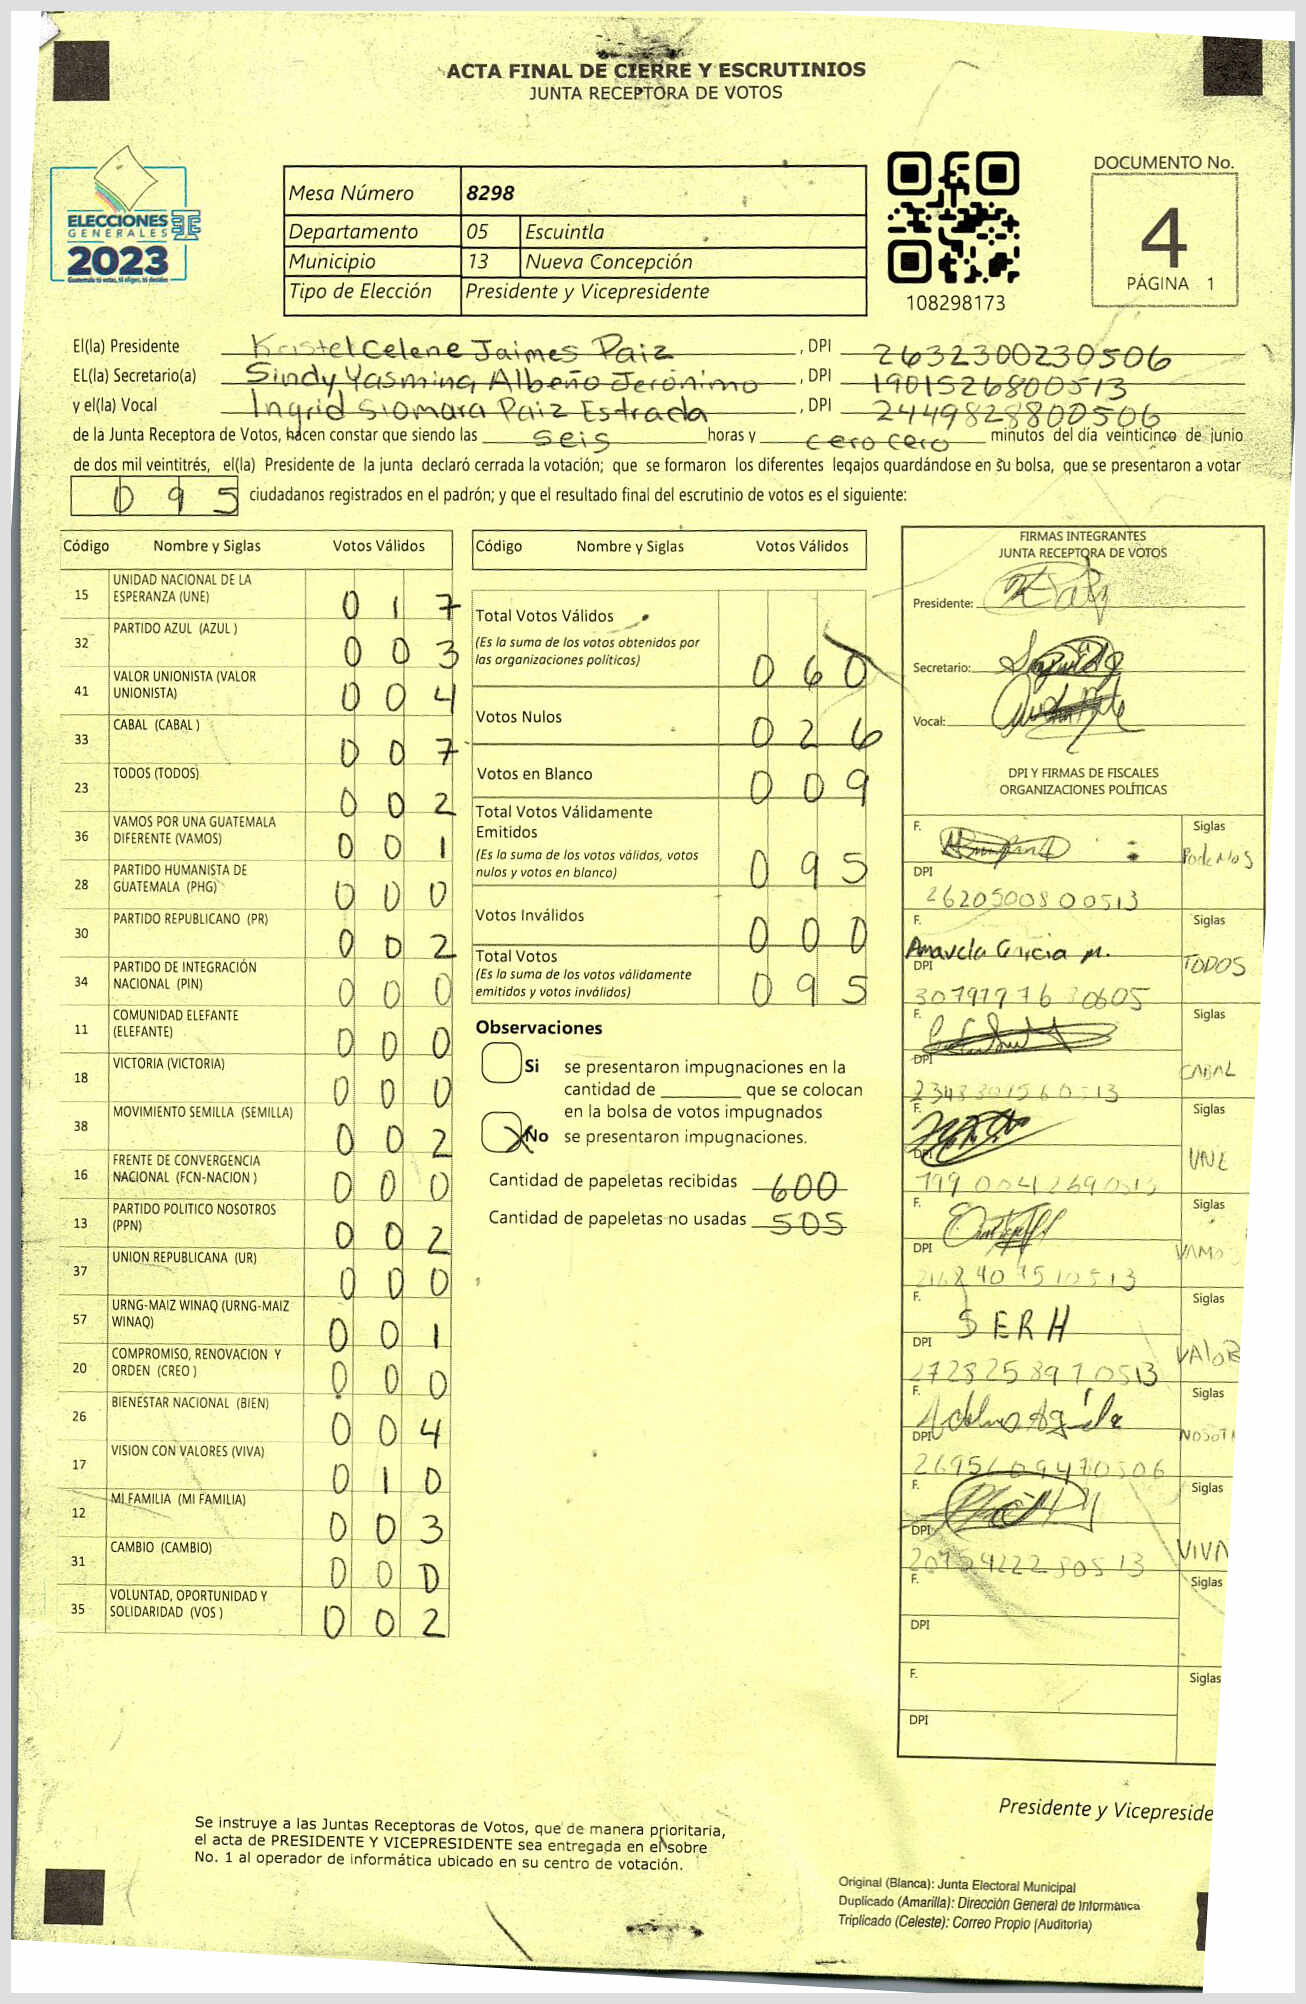 ACTA FINAL DE CIERRE Y ESCRUTINIOS
JUNTA RECEPTORA DE VOTOS
ELECCIONES
GENERALES
2023
Mesa Número 8298
Departamento 05 Escuintla
Municipio 13 Nueva Concepción
Tipo de Elección Presidente y Vicepresidente
108298173
DOCUMENTO No.
4
PÁGINA 1
El(la) Presidente Kristel Celene Jaimes Paiz, DPI 2632300230506
EL(la) Secretario(a) Sindy Yasmina Albeño Jerónimo, DPI 1901526800513
y el(la) Vocal Ingrid Siomara Paiz Estrada, DPI 2449828800506
de la Junta Receptora de Votos, hacen constar que siendo las seis horas y cero cero minutos del día veinticinco de junio
de dos mil veintitrés, el(la) Presidente de la junta declaró cerrada la votación; que se formaron los diferentes legajos quardándose en su bolsa, que se presentaron a votar
095 ciudadanos registrados en el padrón; y que el resultado final del escrutinio de votos es el siguiente:
Código Nombre y Siglas Votos Válidos
15 UNIDAD NACIONAL DE LA ESPERANZA (UNE) 017
32 PARTIDO AZUL (AZUL ) 003
41 VALOR UNIONISTA (VALOR UNIONISTA) 004
33 CABAL (CABAL ) 007
23 TODOS (TODOS) 002
36 VAMOS POR UNA GUATEMALA DIFERENTE (VAMOS) 001
28 PARTIDO HUMANISTA DE GUATEMALA (PHG) 000
30 PARTIDO REPUBLICANO (PR) 002
34 PARTIDO DE INTEGRACIÓN NACIONAL (PIN) 000
11 COMUNIDAD ELEFANTE (ELEFANTE) 000
18 VICTORIA (VICTORIA) 000
38 MOVIMIENTO SEMILLA (SEMILLA) 002
16 FRENTE DE CONVERGENCIA NACIONAL (FCN-NACION ) 000
13 PARTIDO POLITICO NOSOTROS (PPN) 002
37 UNION REPUBLICANA (UR) 000
57 URNG-MAIZ WINAQ (URNG-MAIZ WINAQ) 001
20 COMPROMISO, RENOVACION Y ORDEN (CREO ) 000
26 BIENESTAR NACIONAL (BIEN) 004
17 VISION CON VALORES (VIVA) 010
12 MI FAMILIA (MI FAMILIA) 003
31 CAMBIO (CAMBIO) 000
35 VOLUNTAD, OPORTUNIDAD Y SOLIDARIDAD (VOS ) 002
Código Nombre y Siglas Votos Válidos
Total Votos Válidos 060
(Es la suma de los votos obtenidos por
las organizaciones políticas)
Votos Nulos 026
Votos en Blanco 009
Total Votos Válidamente
Emitidos 095
(Es la suma de los votos válidos, votos
nulos y votos en blanco)
Votos Inválidos 000
Total Votos 095
(Es la suma de los votos válidamente
emitidos y votos inválidos)
Observaciones
Si se presentaron impugnaciones en la
cantidad de ________ que se colocan
en la bolsa de votos impugnados
X No se presentaron impugnaciones.
Cantidad de papeletas recibidas 600
Cantidad de papeletas no usadas 505
FIRMAS INTEGRANTES
JUNTA RECEPTORA DE VOTOS
Presidente:
Secretario:
Vocal:
DPI Y FIRMAS DE FISCALES
ORGANIZACIONES POLÍTICAS
F. Siglas Podemos
DPI 2620500800513
F. Amavela Garcia M. Siglas TODOS
DPI
F. Siglas CABAL
DPI
F. Siglas UNE
DPI
F. Siglas VAMOS
DPI
F. SERH Siglas VALOR
DPI 2728258970513
F. Siglas NOSOT
DPI
F. Siglas VIVA
DPI
F. Siglas
DPI
F. Siglas
DPI
Presidente y Vicepreside
Se instruye a las Juntas Receptoras de Votos, que de manera prioritaria,
el acta de PRESIDENTE Y VICEPRESIDENTE sea entregada en el sobre
No. 1 al operador de informática ubicado en su centro de votación.
Original (Blanca): Junta Electoral Municipal
Duplicado (Amarilla): Dirección General de Informática
Triplicado (Celeste): Correo Propio (Auditoria)